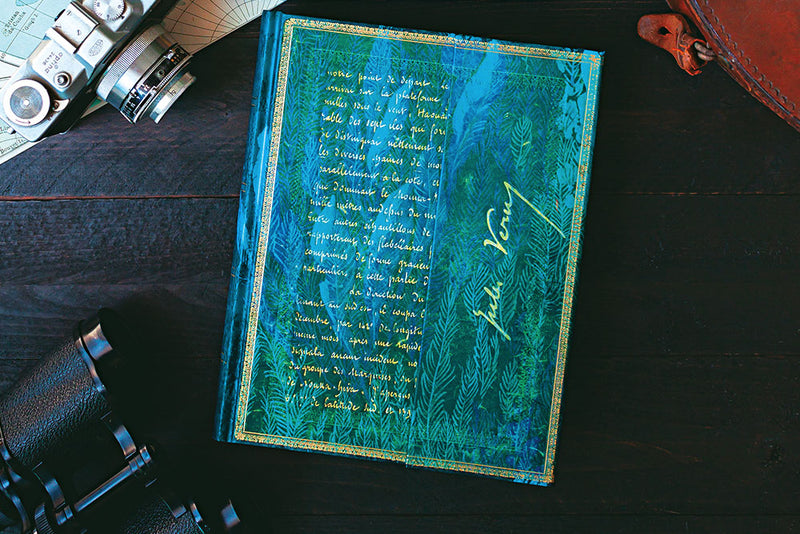 notre point de départ. le
arriva sur la plateforme
milles sous le vent, Haouaï
rable des sept îles qui for
Je distinguai nettement s
les diverses chaines de mon
parallèlement à la côte, et
qui dominait le Mouna-
mille mètres au dessus du ni
Entre autres échantillons de
rapportèrent des flabellaires
comprimés de forme gracieu
particuliers à cette partie d
La direction du
tinuait au sud-est. il coupa l
décembre, par 142° de longitu
même mois, après une rapide
signala aucun incident, no
du groupe des Marquises. Ju
de Nouka-Hiva. J'aperçus
de latitude sud, et 139
Jules Verne
Tristan
da Cunha